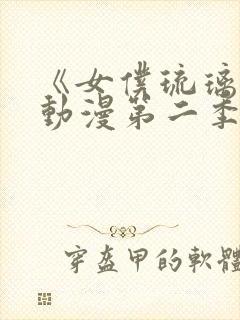 《女僕琉璃
動漫第二季
穿盔甲的軟體